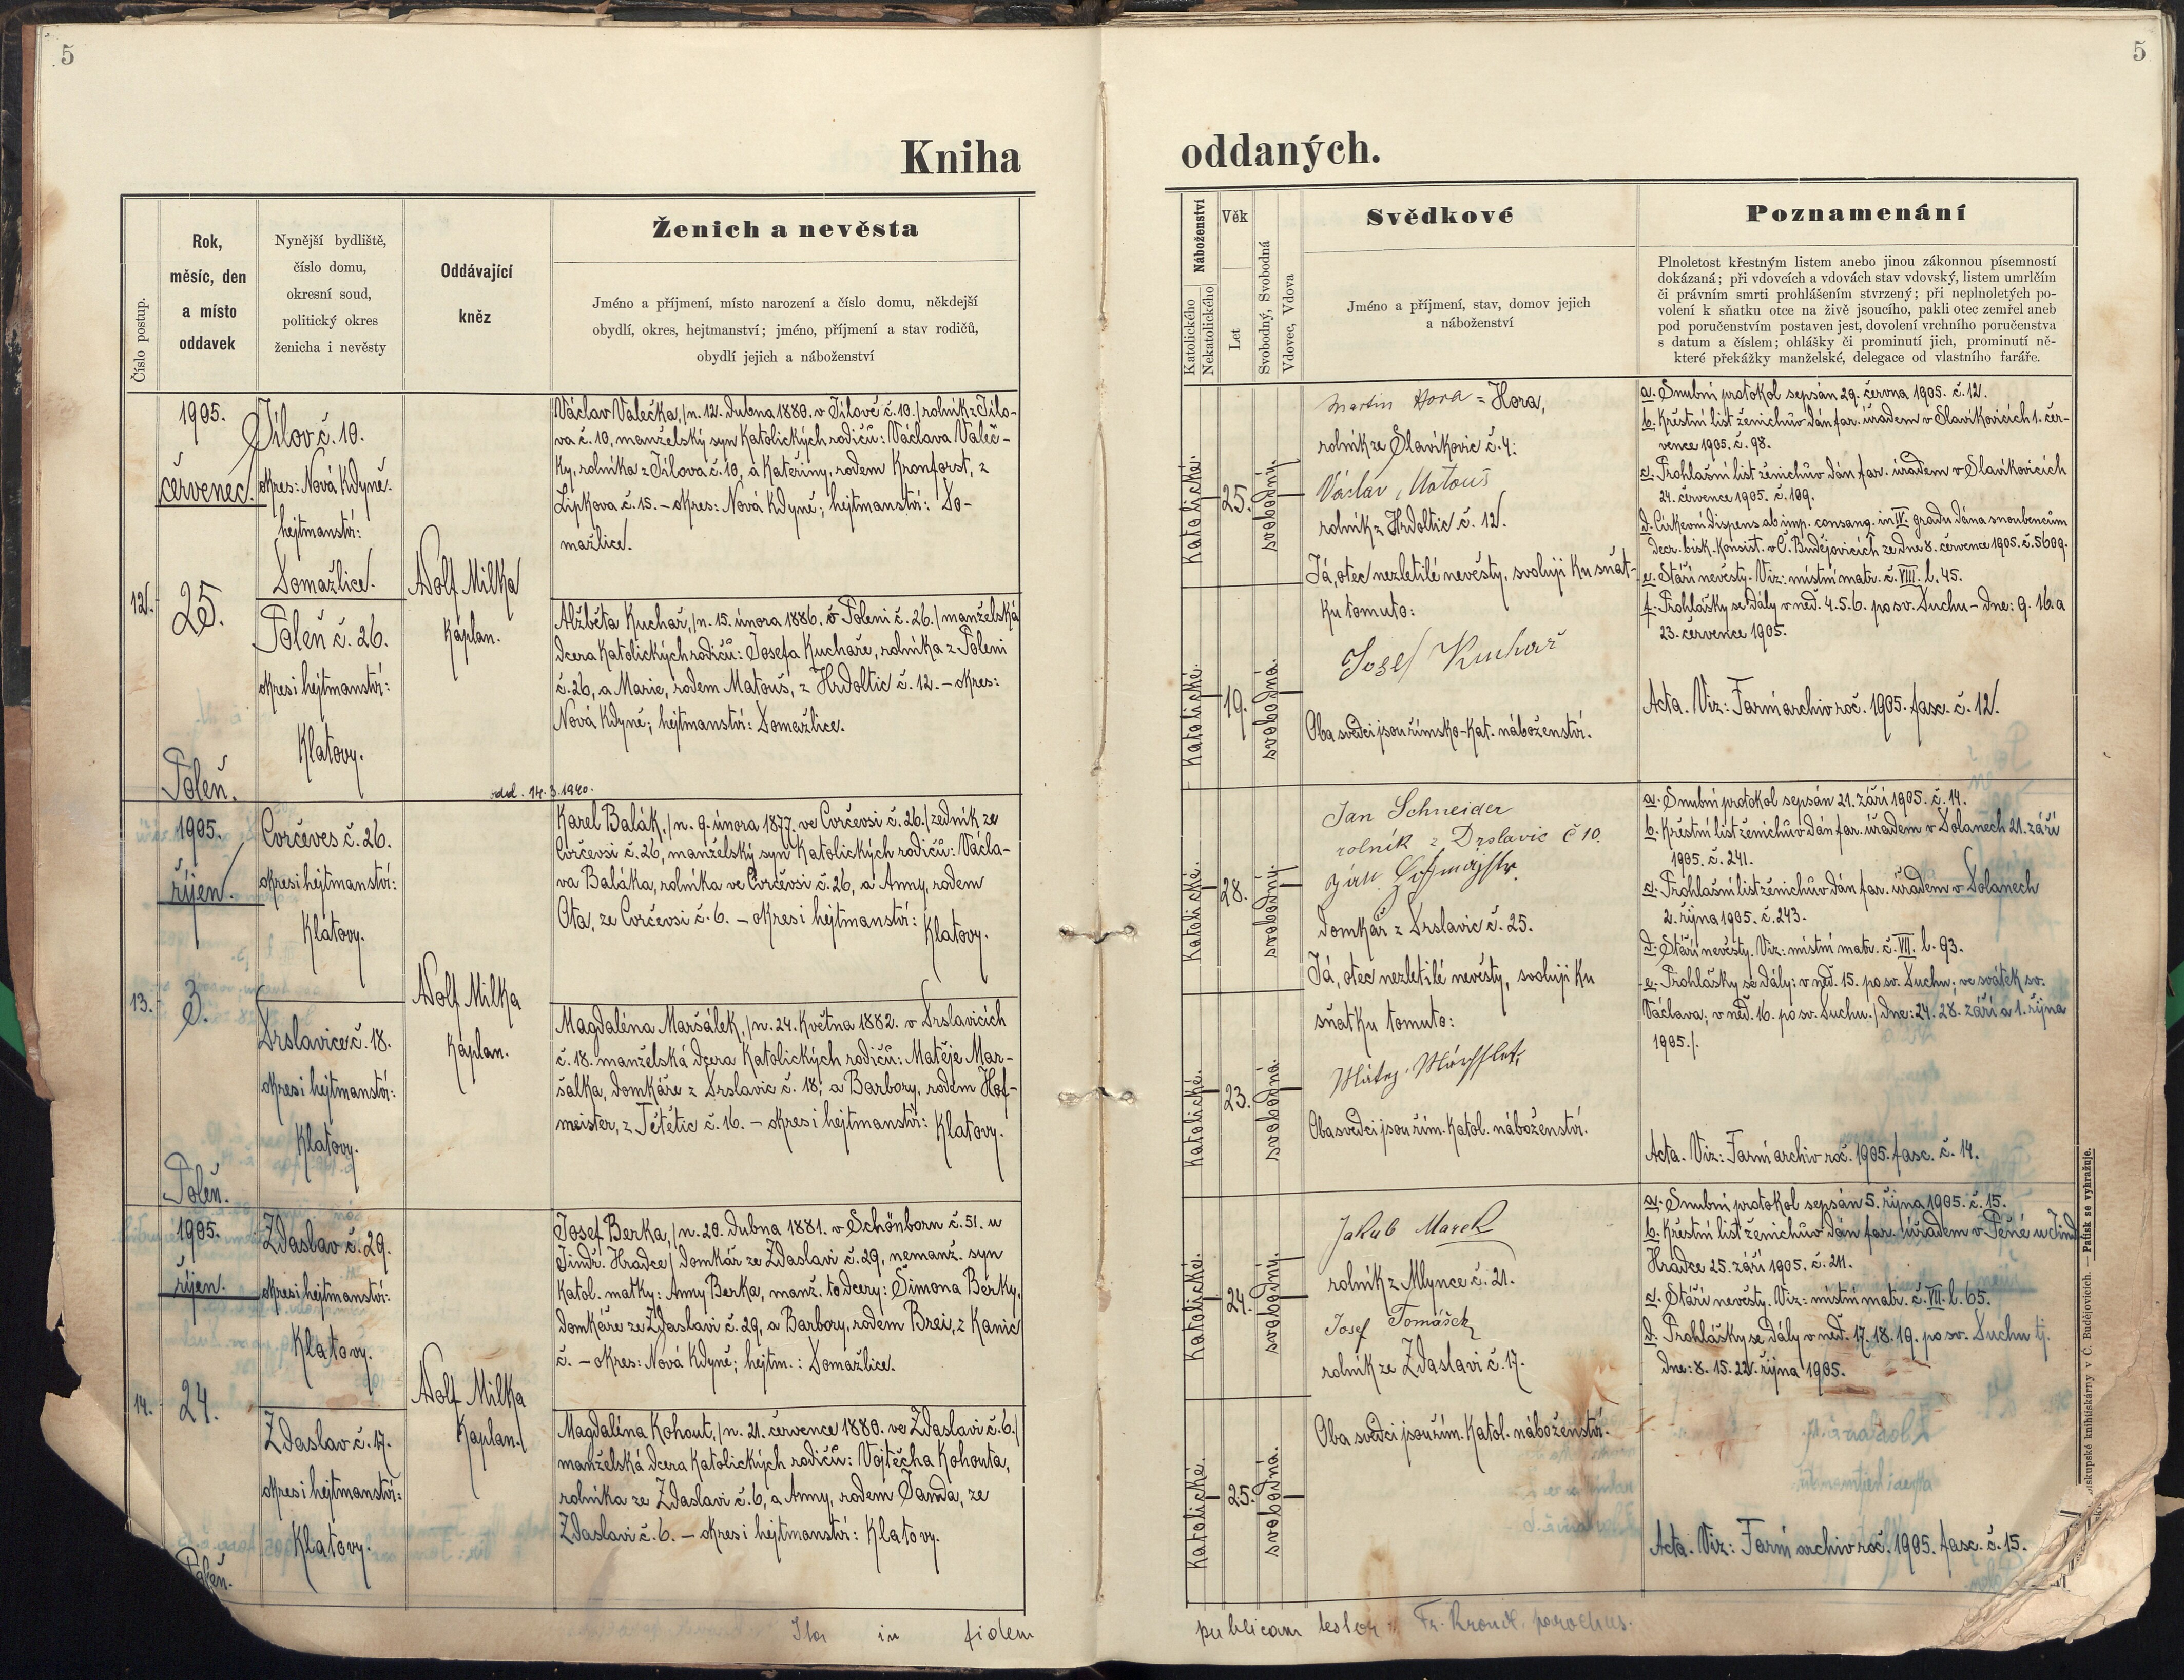 5
5
Kniha
oddaných.
Číslo postup.
Rok,
měsíc, den
a místo
oddavek
Nynější bydliště,
číslo domu,
okresní soud,
politický okres
ženicha i nevěsty
Oddávající
kněz
Ženich a nevěsta
Jméno a příjmení, místo narození a číslo domu, někdejší
obydlí, okres, hejtmanství; jméno, příjmení a stav rodičů,
obydlí jejich a náboženství
12.
1905.
červenec.
25.
Poleň.
Jílov č. 10.
okres: Nová Kdyně.
hejtmanství:
Domažlice.
Poleň č. 26.
okres i hejtmanství:
Klatovy.
Adolf Milka
kaplan.
Václav Valečka, /n. 12. dubna 1880. v Jílově č. 10./ rolník z Jílo-
va č. 10, manželský syn katolických rodičů: Václava Valeč-
ky, rolníka z Jílova č. 10, a Kateřiny, rodem Kronforst, z
Lipkova č. 15. – okres: Nová Kdyně; hejtmanství: Do-
mažlice.
Alžběta Kuchař, /n. 15. února 1886. v Poleni č. 26./ manželská
dcera katolických rodičů: Josefa Kuchaře, rolníka z Poleni
č. 26, a Marie, rodem Matouš, z Hrdoltic č. 12. – okres:
Nová Kdyně; hejtmanství: Domažlice.
13.
1905.
říjen.
3.
Poleň.
Cvrčeves č. 26.
okres i hejtmanství:
Klatovy.
Drslavice č. 18.
okres i hejtmanství:
Klatovy.
Adolf Milka
kaplan.
14.3.1940.
Karel Balák, /n. 9. února 1877. ve Cvrčevsi č. 26./ zedník ze
Cvrčevsi č. 26, manželský syn katolických rodičů: Václa-
va Baláka, rolníka ve Cvrčevsi č. 26, a Anny, rodem
Ota, ze Cvrčevsi č. 6. – okres i hejtmanství: Klatovy.
Magdaléna Maršálek, /n. 24. května 1882. v Drslavicích
č. 18. manželská dcera katolických rodičů: Matěje Mar-
šálka, domkáře z Drslavic č. 18, a Barbory, rodem Hof-
meister, z Tětětic č. 16. – okres i hejtmanství: Klatovy.
14.
1905.
říjen.
24.
Poleň.
Zdaslav č. 29.
okres i hejtmanství:
Klatovy.
Zdaslav č. 17.
okres i hejtmanství:
Klatovy.
Adolf Milka
kaplan.
Josef Berka, /n. 20. dubna 1881. v Schönborn č. 51. u
Jindř. Hradce/ domkář ze Zdaslavi č. 29, nemanž. syn
katol. matky: Anny Berka, manž. to dcery: Šimona Berky,
domkáře ze Zdaslavi č. 29, a Barbory, rodem Brei, z Kanic
č. – okres: Nová Kdyně; hejtm.: Domažlice.
Magdaléna Kohout, /n. 21. července 1880. ve Zdaslavi č. 6./
manželská dcera katolických rodičů: Vojtěcha Kohouta,
rolníka ze Zdaslavi č. 6, a Anny, rodem Janda, ze
Zdaslavi č. 6. – okres i hejtmanství: Klatovy.
Ita in fidem
Náboženství
Katolického
Nekatolického
Věk
Let
Svobodný, Svobodná
Vdovec, Vdova
Svědkové
Jméno a příjmení, stav, domov jejich
a náboženství
Poznamenání
Plnoletost křestným listem anebo jinou zákonnou písemností
dokázaná; při vdovcích a vdovách stav vdovský, listem umrlčím
či právním smrti prohlášením stvrzený; při neplnoletých po-
volení k sňatku otce na živě jsoucího, pakli otec zemřel aneb
pod poručenstvím postaven jest, dovolení vrchního poručenstva
s datum a číslem; ohlášky či prominutí jich, prominutí ně-
které překážky manželské, delegace od vlastního faráře.
katolické.
25.
svobodný.
katolické.
19.
svobodná.
Martin Hora = Hora,
rolník ze Slavíkovic č. 4:
Václav Matouš
rolník z Hrdoltic č. 12.
Já, otec nezletilé nevěsty, svoluji ku sňat-
ku tomuto:
Josef Kuchař
Oba svědci jsou římsko-kat. náboženství.
a. Snubní protokol sepsán 29. června 1905. č. 12.
b. Křestní list ženichův dán far. úřadem v Slavíkovicích 1. čer-
vence 1905. č. 98.
c. Prohlašní list ženichův dán far. úřadem v Slavíkovicích
24. července 1905. č. 109.
d. Církevní dispens ab imp. consang. in IV. gradu dána snoubencům
decr. bisk. konsist. v Č. Budějovicích ze dne 8. července 1905. č. 5609.
e. Stáří nevěsty. Viz: místní matr. č. VIII. l. 45.
f. Prohlášky se dály v neď. 4. 5. 6. po sv. Duchu – dne: 9. 16. a
23. července 1905.
Acta. Viz: Farní archiv roč. 1905. fasc. č. 12.
katolické.
28.
svobodný.
katolické.
23.
svobodná.
Jan Schneider
rolník z Drslavic č 10.
domkář z Drslavic č. 25.
Já, otec nezletilé nevěsty, svoluji ku
sňatku tomuto:
Oba svědci jsou řím. katol. náboženství.
a. Snubní protokol sepsán 21. září 1905. č. 14.
b. Křestní list ženichův dán far. úřadem v Dolanech 21. září
1905. č. 241.
c. Prohlašní list ženichův dán far. úřadem v Dolanech
2. října 1905. č. 243.
d. Stáří nevěsty. Viz: místní matr. č. VII. l. 93.
e. Prohlášky se dály: v neď. 15. po sv. Duchu; ve svátek sv.
Václava; v neď. 16. po sv. Duchu. / dne: 24. 28. září a 1. října
1905./.
Acta. Viz: Farní archiv roč. 1905. fasc. č. 14.
katolické.
24.
svobodný.
katolické.
25.
svobodná.
Jakub Marek
rolník z Mlynce č. 21.
Josef Tomášek
rolník ze Zdaslavi č. 17.
Oba svědci jsou řím. katol. náboženství.
a. Snubní protokol sepsán 5. října 1905. č. 15.
b. Křestní list ženichův dán far. úřadem v Pěné u Jind.
Hradce 25. září 1905. č. 211.
c. Stáří nevěsty. Viz: místní matr. č. VII. l. 65.
d. Prohlášky se dály v neď. 17. 18. 19. po sv. Duchu tj.
dne: 8. 15. 22. října 1905.
Acta. Viz: Farní archiv roč. 1905. fasc. č. 15.
knihtiskárny v Č. Budějovicích. — Patisk se vyhražuje.
publicam testor: Fr. parochus.